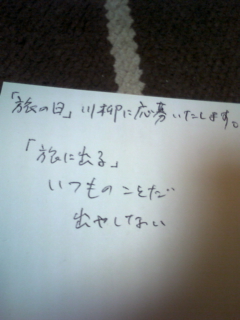 「旅の日」川柳に応募いたします。
「旅に出る」
いつものことだ
出やしない